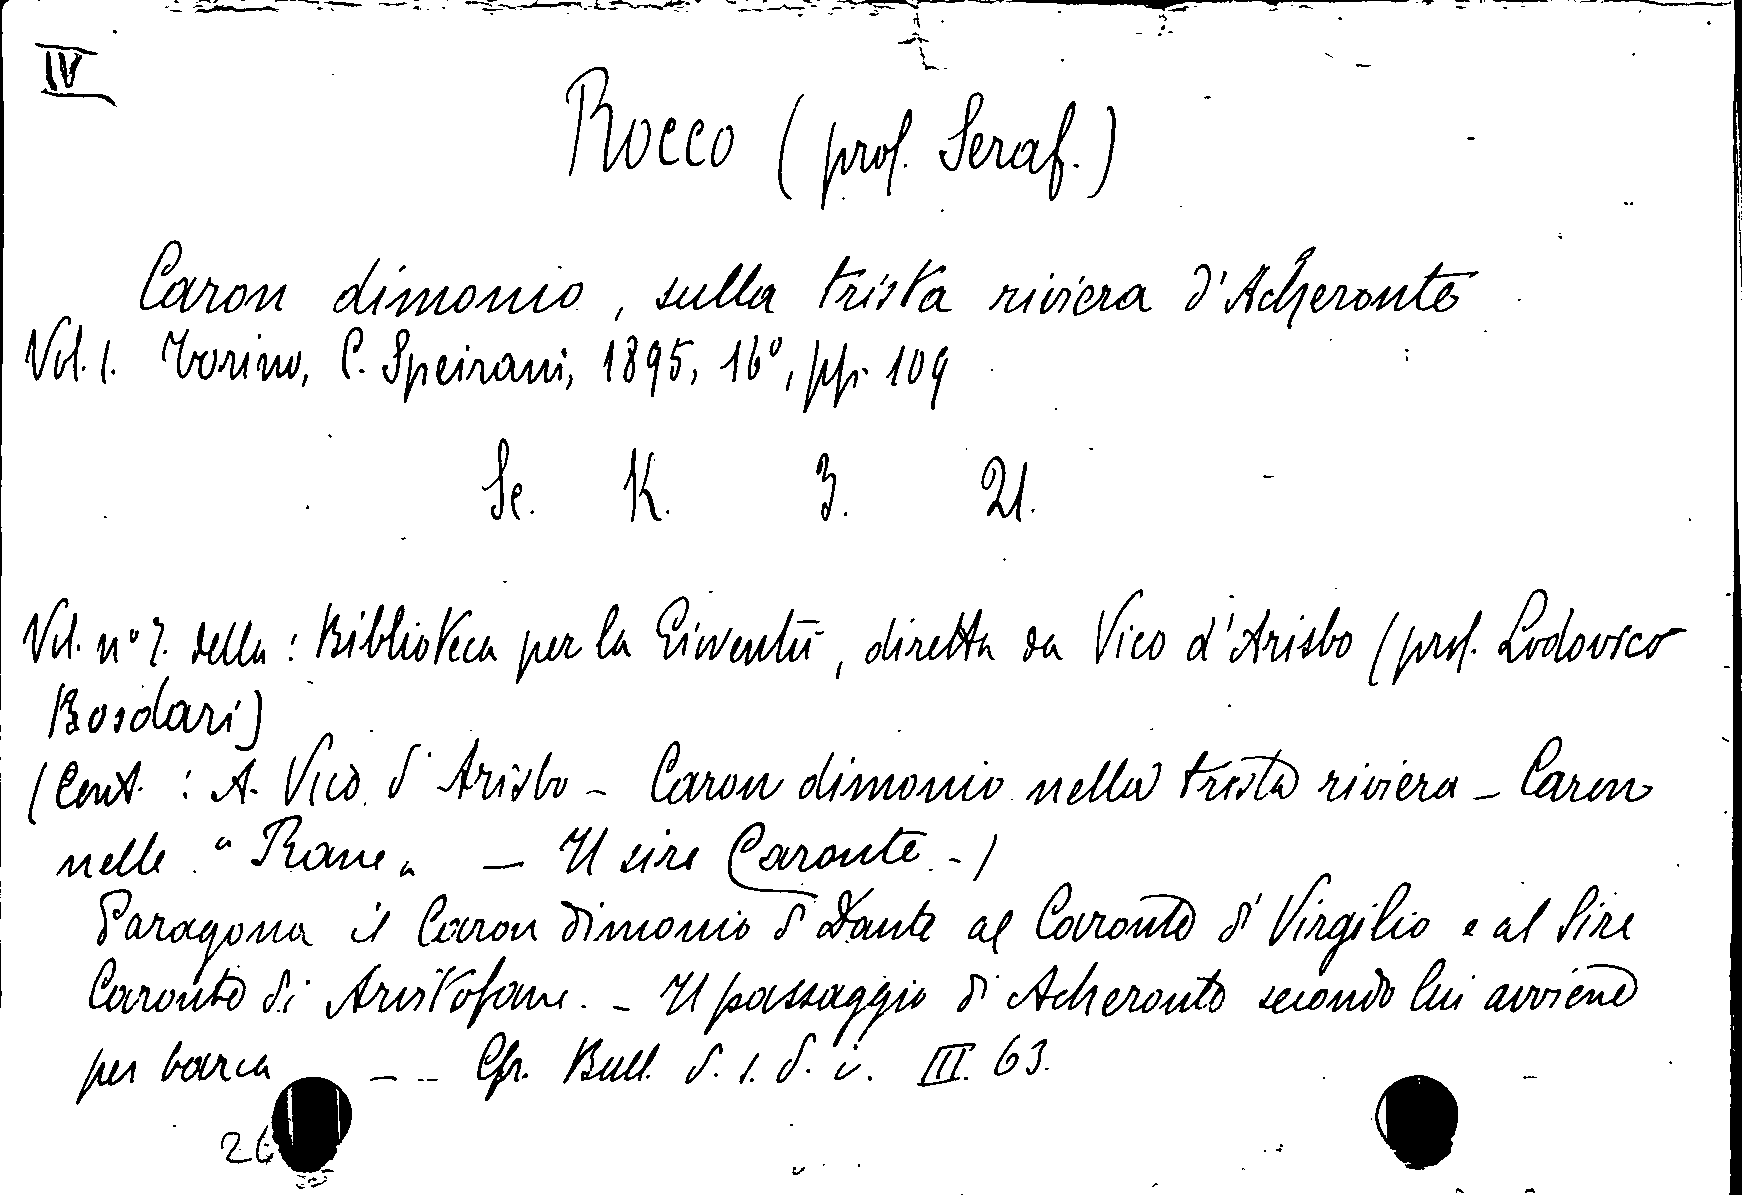 IV
Rocco (prof. Seraf.)
Caron dimonio, sulla trista riviera d'Acheronte
Vol. 1. Torino, C. Speirani, 1895, 16°, pp. 109
Se. K. 3. 21.
Vol. n° 7. della : Biblioteca per la Gioventù, diretta da Vico d'Arisbo (prof. Lodovico
Bosdari)
(Cont. : A. Vico d'Arisbo - Caron dimonio nella trista riviera - Caron
nelle "Rane" - Il sire Caronte -)
Paragona il Caron dimonio di Dante al Caronte di Virgilio e al Sire
Caronte di Aristofane. - Il passaggio di Acheronte secondo lui avviene
per barca - - Cfr. Bull. d. s. d. i. III. 63.